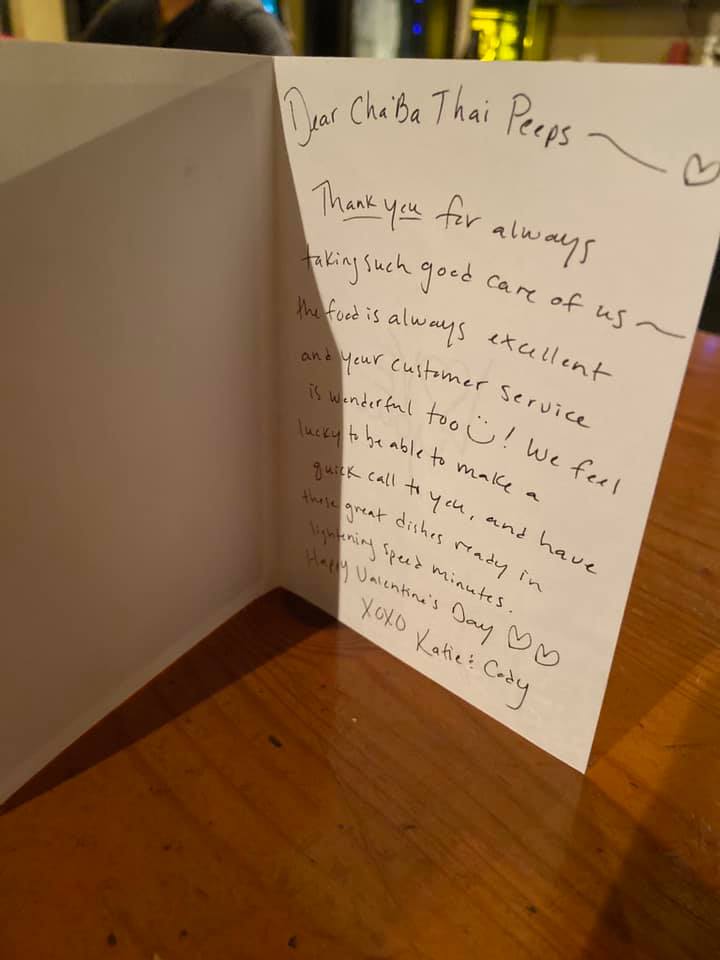 Dear Cha'Ba Thai Peeps ~ ♡
Thank you for always
taking such good care of us ~
the food is always excellent
and your customer service
is wonderful too ☺! We feel
lucky to be able to make a
quick call to you, and have
these great dishes ready in
lightening speed minutes.
Happy Valentine's Day ♡♡
XOXO Katie & Cody